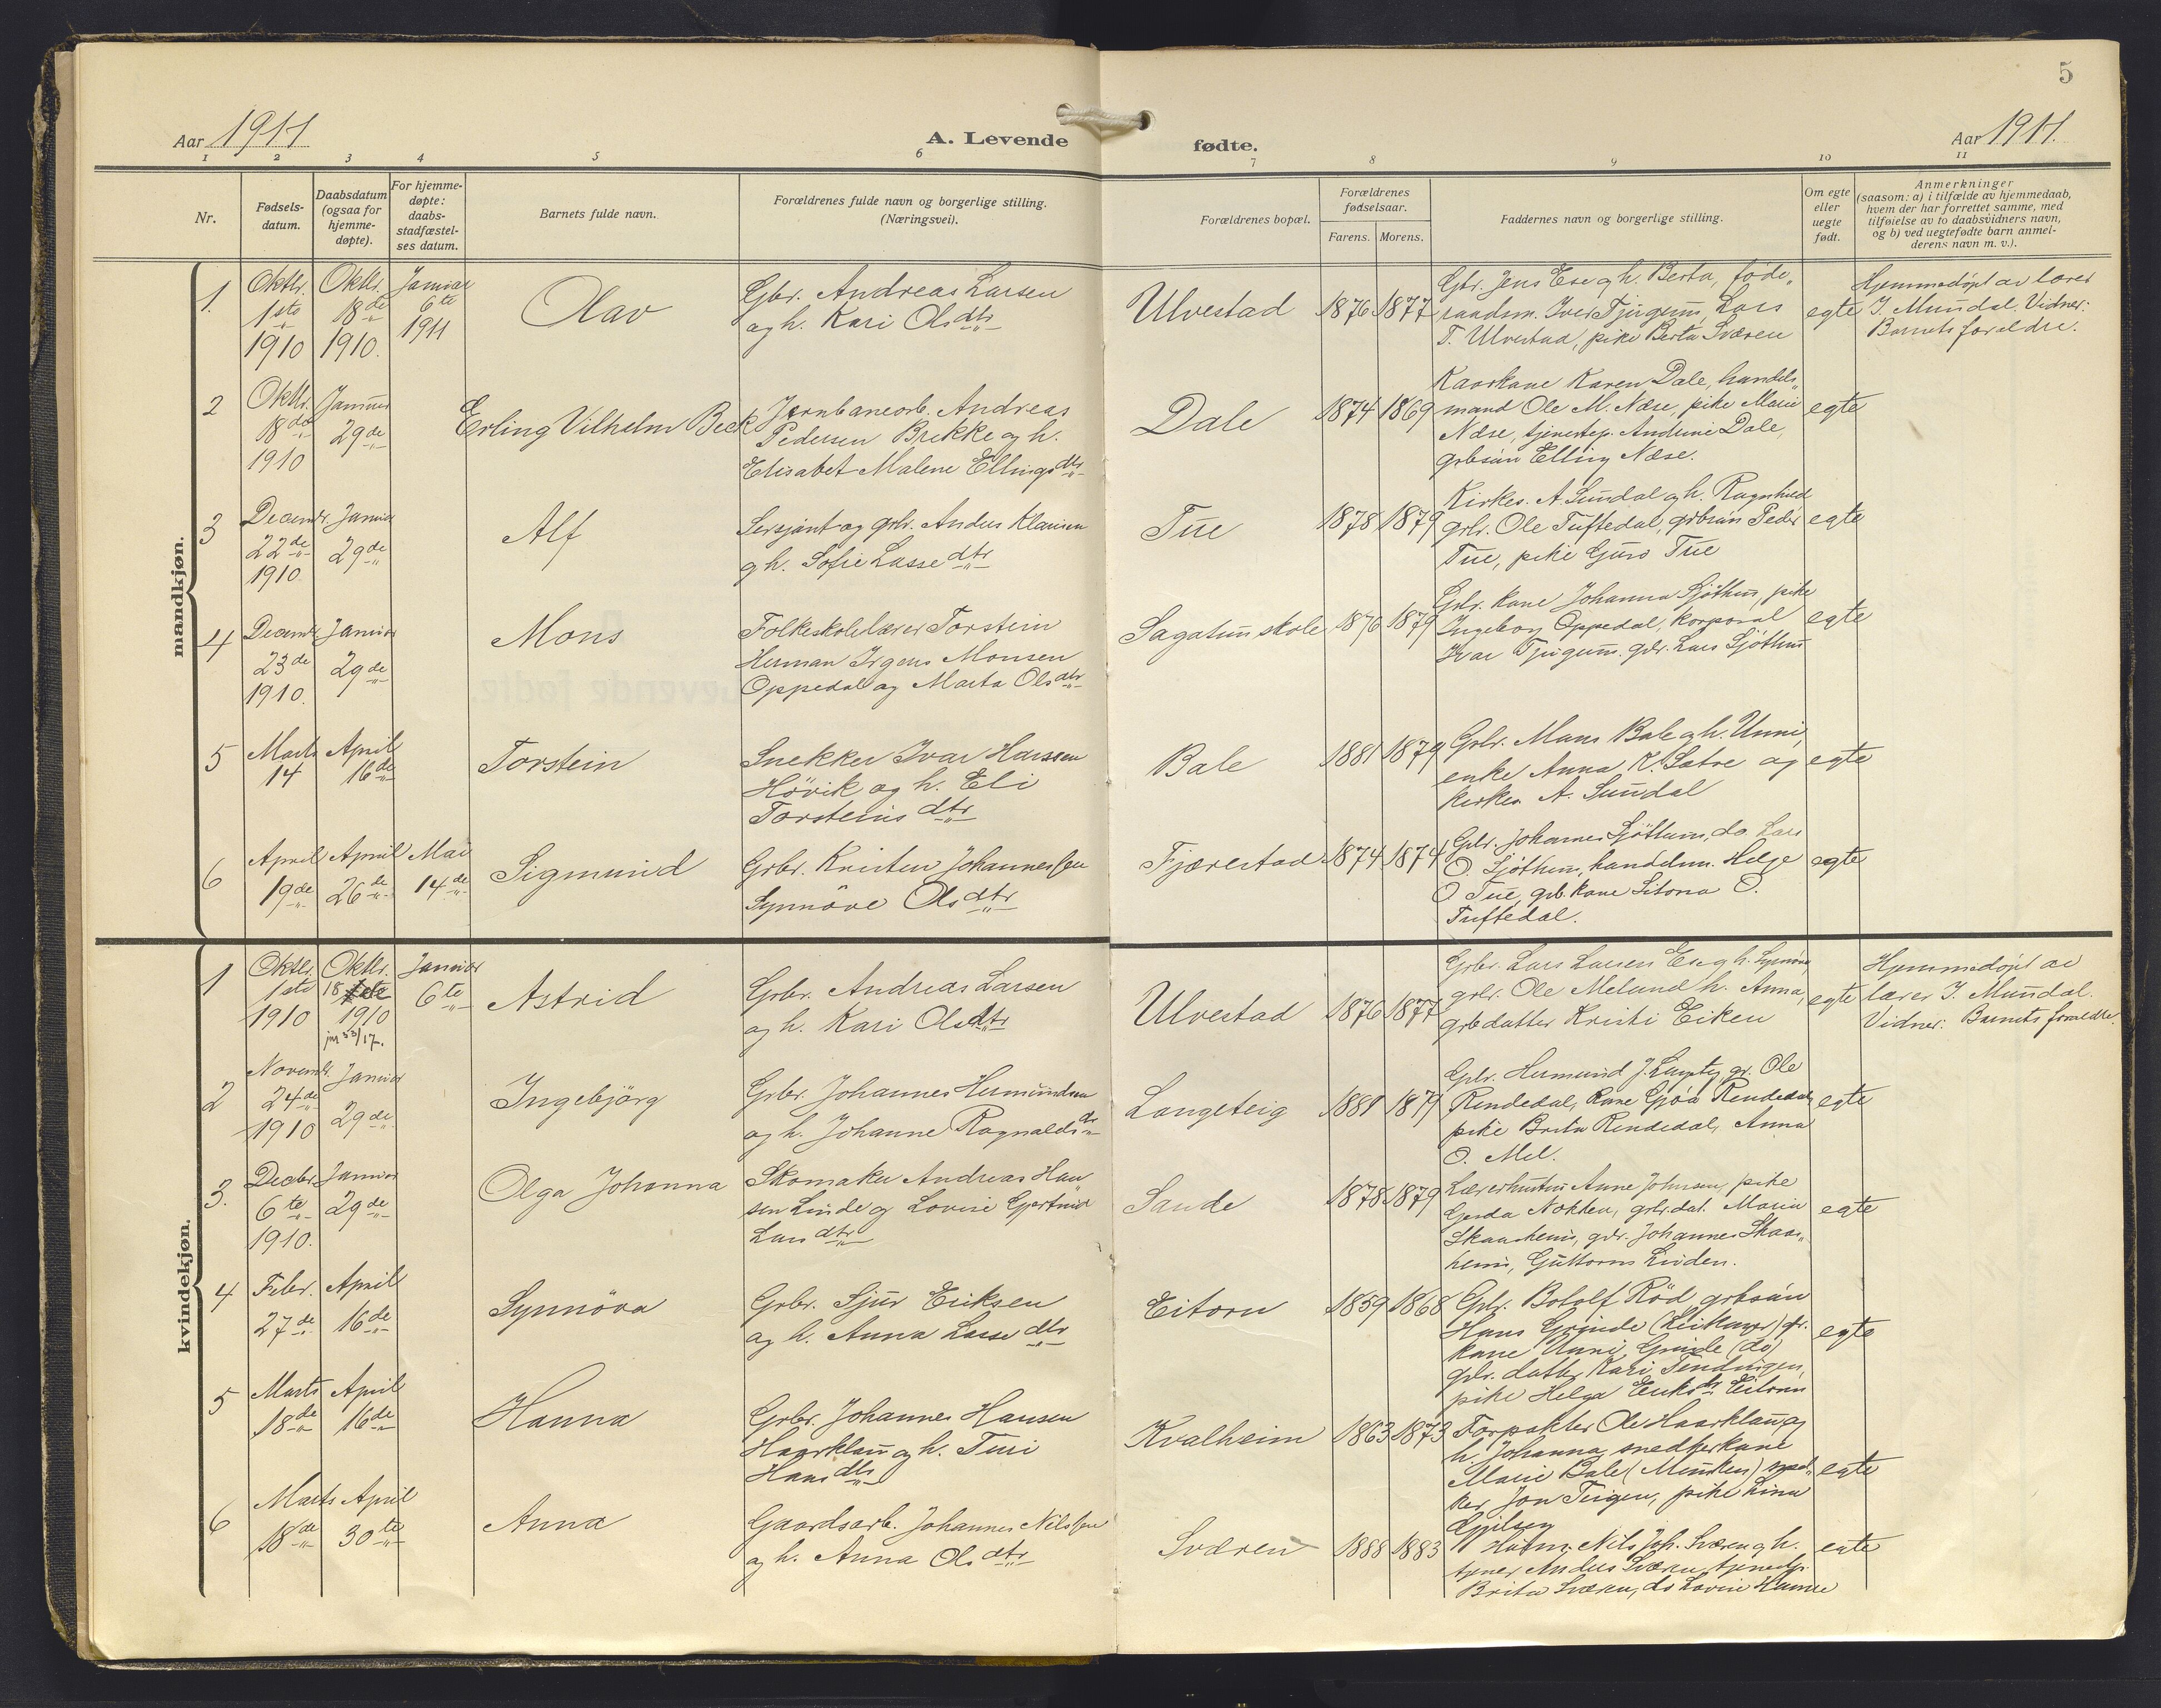 5
Aar 1911
A. Levende
fødte.
Aar 1911.
1 2 3 4 5 6 7 8 9 10 11
Nr.
Fødsels-
datum.
Daabsdatum
(ogsaa for
hjemme-
døpte).
For hjemme-
døpte:
daabs-
stadfæstel-
ses datum.
Barnets fulde navn.
Forældrenes fulde navn og borgerlige stilling.
(Næringsvei).
Forældrenes bopæl.
Forældrenes
fødselsaar.
Farens. Morens.
Faddernes navn og borgerlige stilling.
Om egte
eller
uegte
født.
Anmerkninger
(saasom: a) i tilfælde av hjemmedaab,
hvem der har forrettet samme, med
tilføielse av to daabsvidners navn,
og b) ved uegtefødte barn anmel-
derens navn m. v.).
mandkjøn.
1.
Oktbr.
1ste
1910
Oktbr.
18de
1910.
Januar
6te
1911
Olav
Gbr. Andreas Larsen
og h. Kari Olsdtr
Ulvestad
1876 1877
Gbr. Jens Ese og h. Berta, føde„
raadsm. Iver Tjugum, Lars
T. Ulvestad, pike Berta Sværen
egte
Hjemmedøpt av lærer
J. Mundal. Vidner:
Barnets forældre.
2
Oktbr.
18de
1910
Januar
29de
Erling Vilhelm Beck
Jernbanearb. Andreas
Pedersen Brekke og h.
Elisabet Malene Ellingsdtr
Dale
1874 1869
Kaarkane Karen Dale, handels„
mand Ole M. Næse, pike Marie
Næse, tjenestep. Andrine Dale,
grbsøn Elling Næse.
egte
3
Decembr.
22de
1910
Januar
29de
Alf
Sersjant og grbr. Anders Klausen
og h. Sofie Lassedtr
Tue
1878 1879
Kirkes. A Sundal og h. Ragnhild
grbr. Ole Tuftedal, grbsøn Peder
Tue, pike Guro Tue
egte
4
Decembr
23de
1910.
Januar
29de
Mons
Folkeskolelærer Torstein
Herman Irgens Monsen
Oppedal og Marta Olsdtr
Sagatun skole
1876 1879
Grbr. kone Johanna Sjøthun, pike
Ingeborg Oppedal, korporal
Ivar Tjugum. gbr. Lars Sjøthun
egte
5
Marts
14
April
16de
Torstein
Snekker Ivar Hanssen
Hövik og h. Eli
Torsteinsdtr
Bale
1881 1879
Grbr. Mans Bale og h. Unni,
enke Anna K. Sætre og
kirkes. A. Sundal
egte
6
April
19de
April
26de
Mai
14de
Sigmund
Grbr. Kristen Johannessen
Synnöve Olsdtr
Fjærestad
1874 1874
Grbr. Johannes Sjøthun, do. Lars
O. Sjøthun, handelsm. Helge
O Tue, grb. kone Sitona O.
Tuftedal.
egte
kvindekjøn.
1
Oktbr.
1ste
1910
Oktbr.
18
1910
jnr 33/17.
Januar
6te
Astrid
Grbr. Andreas Larsen
og h. Kari Olsdtr
Ulvestad
1876 1877
Grbr. Lars Larsen Ese og h. Synnøva
grbr. Ole Melund h. Anna,
grbdatter Kristi Eiken
egte
Hjemmedøpt av
lærer J. Mundal.
Vidner: Barnets forældre.
2
Novembr.
24de
1910
Januar
29de
Ingebjörg
Grbr. Johannes Hermundsen
og h. Johanne Ragnaldsdtr
Langeteig
1881 1879
Grbr. Hermund J. gr. Ole
Rendedal, kone Gjøa Rendedal,
pike Brita Rendedal, Anna
O. Mel.
egte
3.
Decbr.
6te
1910.
Januar
29de
Olga Johanna
Skomaker Andreas Han„
sen Linde og Lovise Gjertrud
Larsdtr
Sande
1878 1879
Lærerhustru Anne Johnsen, pike
Gerda Nokken, grbr.dat. Marie
Skaasheim, gbr. Johannes Skaas„
heim, Guttorm Linden.
egte
4
Febr.
27de
April
16de
Synnöva
Grbr. Sjur Eriksen
og h. Anna Lassedtr
Eitorn
1859 1868
Gbr. Botolf Röd grbsön
Hans Grinde (Leikanger) gr.
kane Unni Grinde (do)
grbr. datter Kari Tendingen,
pike Helga Eriksdtr Eitorn
egte
5
Marts
18de
April
16de
Hanna
Grbr. Johannes Hansen
Haarklau og h. Turi
Hansdtr
Kvalheim
1863 1873
Forpakter Ole Haarklau og
h. Johanna, snedkerkane
Marie Bale (Munken) sned„
ker Jon Teigen, pike Lina
egte
6
Marts
18de
April
30te
Anna
Gaardsarb. Johannes Nilssen
og h. Anna Olsdtr
Sværen
1888 1883
Husm. Nils Joh. Sværen og h.
tjener Anders Sværen, tjenestp.
Brita Sværen, do Lovise Hamre
egte